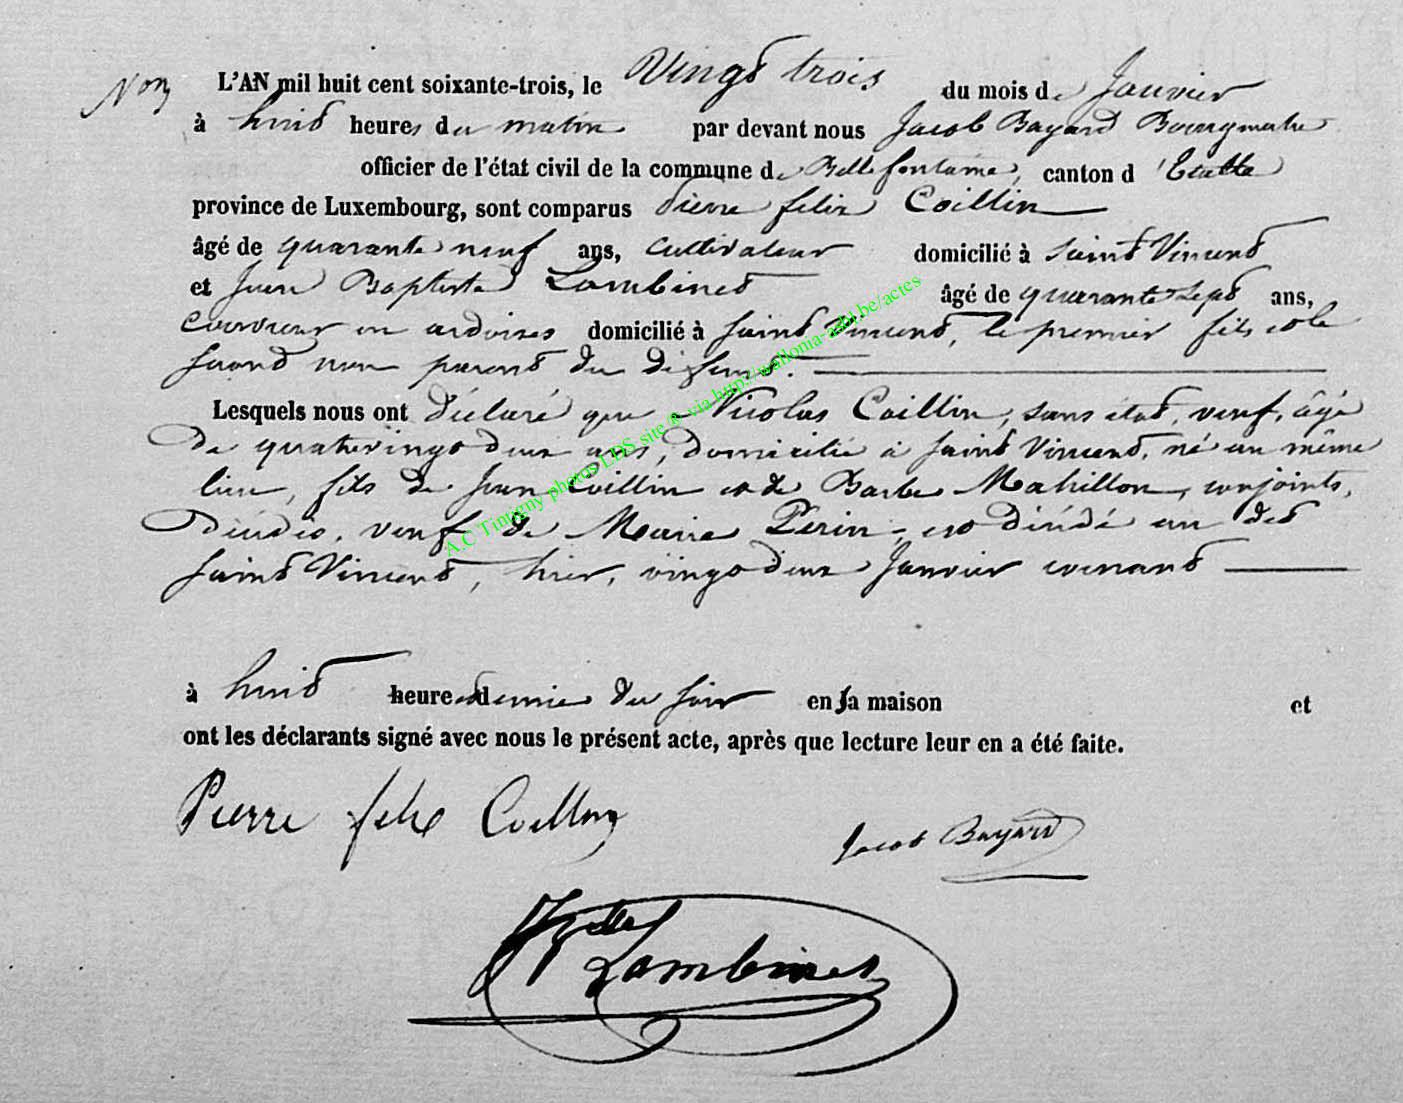 Non
L'AN mil huit cent soixante-trois, le Vingt trois du mois de Janvier
à huit heures du matin par devant nous Jacob Bayard Bourgmestre
officier de l'état civil de la commune de Bellefontaine, canton d'Etalle
province de Luxembourg, sont comparus Pierre felix Coillin
âgé de quarante neuf ans, cultivateur domicilié à Saint Vincent
et Jean Baptiste Lambinet âgé de quarante sept ans,
couvreur en ardoises domicilié à Saint Vincent, le premier fils et le
second non parent du defunt.
Lesquels nous ont déclaré que Nicolas Coillin, sans état, veuf, âgé
de quatrevingt deux ans, domicilié à Saint Vincent, né au même
lieu, fils de Jean Coillin et de Barbe Mahillon, conjoints,
décédés, veuf de Marie Périn, est décédé au dit
Saint Vincent, hier, vingt deux Janvier courant
à huit heures demie du soir en sa maison et
ont les déclarants signé avec nous le présent acte, après que lecture leur en a été faite.
Pierre felix Coillin
Jacob Bayard
JBte Lambinet
A.C Tintigny photos LDS site @ via http://wallonia-asbl.be/actes